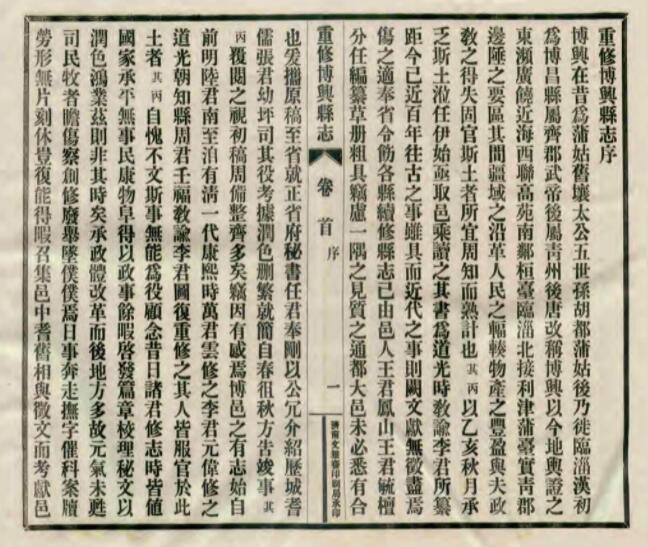 重修博興縣志序
博興在昔為蒲姑舊壤太公五世孫胡都蒲姑後乃徙臨淄漢初
為博昌縣屬齊郡武帝後屬青州後唐改稱博興以今地輿證之
東瀕廣饒近海西聯高苑南鄰桓臺臨淄北接利津蒲臺實青郡
邊陲之要區其間疆域之沿革人民之輻輳物產之豐盈與夫政
敎之得失固官斯土者所宜周知而熟計也其丙以乙亥秋月承
乏斯土涖任伊始亟取邑乘讀之其書為道光時敎諭李君所纂
距今已近百年往古之事雖具而近代之事則闕文獻無徵盡焉
傷之適奉省令飭各縣續修縣志已由邑人王君鳳山王君毓檀
分任編纂草册粗具竊慮一隅之見質之通都大邑未必悉有合
重修博興縣志
卷首
序
一
濟南文雅齋印刷局承印
也爰攜原稿至省就正省府秘書任君奉剛以公冗介紹歷城耆
儒張君幼坪司其役考據潤色删繁就簡自春徂秋方告竣事其
丙覆閱之視初稿周備整齊多矣竊因有感焉博邑之有志始自
前明陸君南至洎有清一代康熙時萬君雲修之李君元偉修之
道光朝知縣周君壬福敎諭李君圖復重修之其人皆服官於此
土者其丙自愧不文斯事無能為役顧念昔日諸君修志時皆値
國家承平無事民康物阜得以政事餘暇啓發篇章校理秘文以
潤色鴻業茲則非其時矣承政體改革而後地方多故元氣未甦
司民牧者瞻傷察創修廢舉墜僕僕焉日事奔走撫字催科案牘
勞形無片刻休豈復能得暇召集邑中耆舊相與徵文而考獻邑